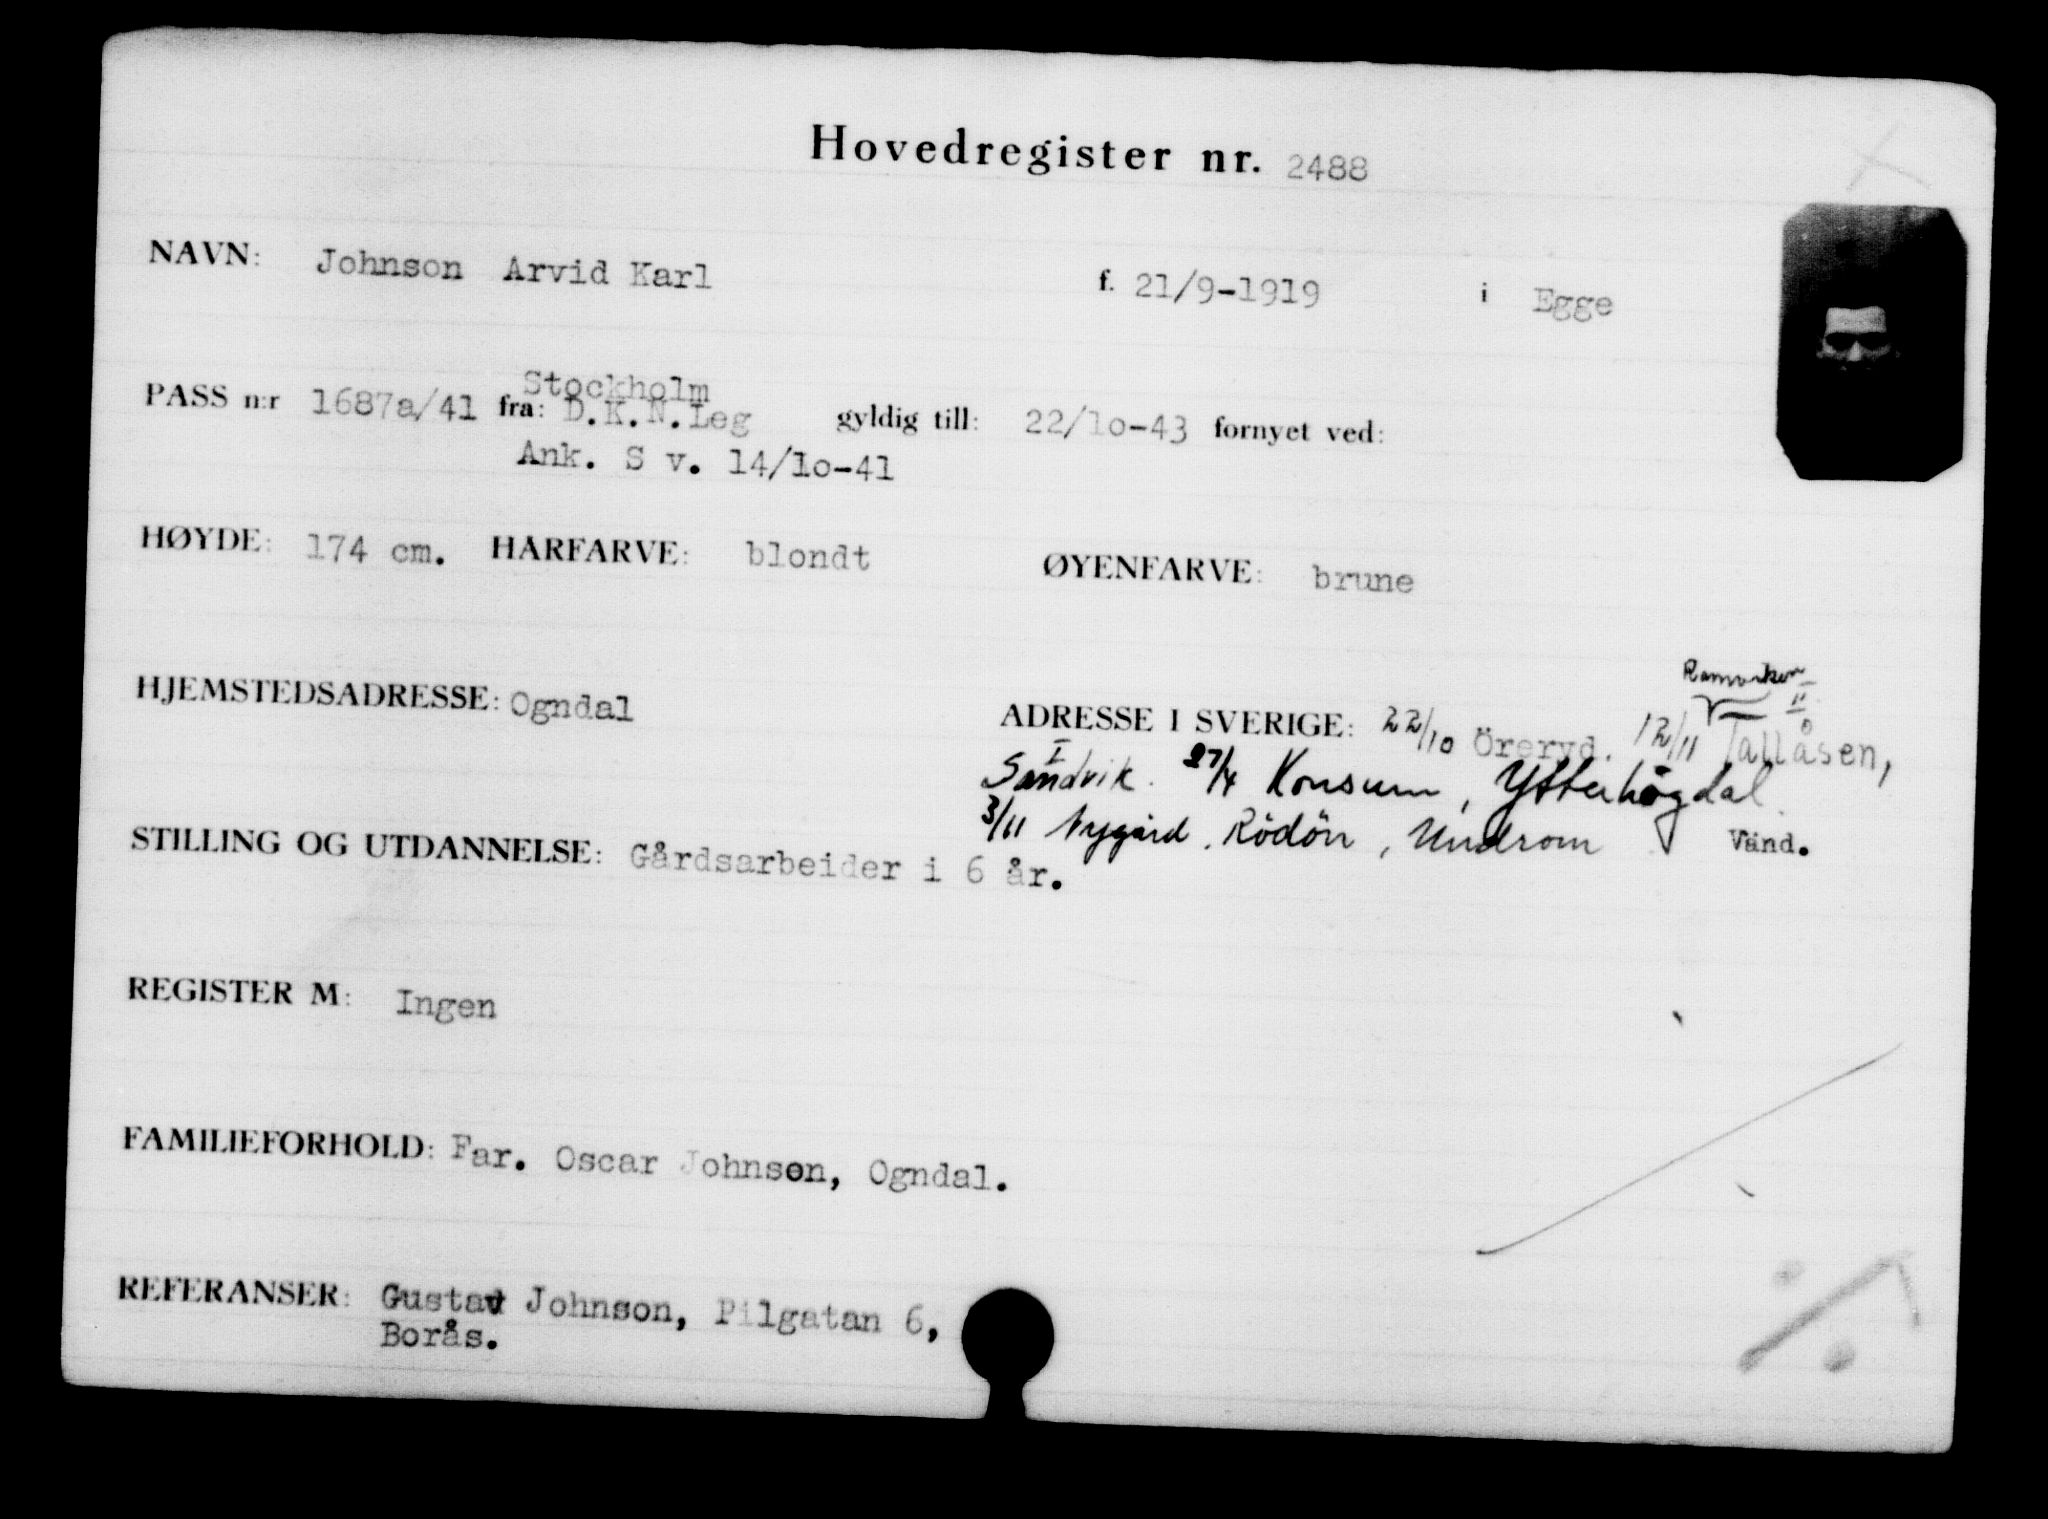 Hovedregister nr. 2488
NAVN: Johnson Arvid Karl f. 21/9-1919 i Egge
Stockholm
PASS n:r 1687a/41 fra: D.K.N.Leg gyldig till: 22/1o-43 fornyet ved:
Ank. S v. 14/1o-41
HØYDE: 174 cm. HÅRFARVE: blondt ØYENFARVE: brune
Ramviken
HJEMSTEDSADRESSE: Ogndal ADRESSE I SVERIGE: 22/10 Öreryd. 12/11 Tallåsen,
Sandvik. 27/4 Konsum, Ytterhögdal
3/11 Nygård, Rödön, Undrom Vänd.
STILLING OG UTDANNELSE: Gårdsarbeider i 6 år.
REGISTER M: Ingen
FAMILIEFORHOLD: Far. Oscar Johnson, Ogndal.
REFERANSER: Gustav Johnson, Pilgatan 6,
Borås.